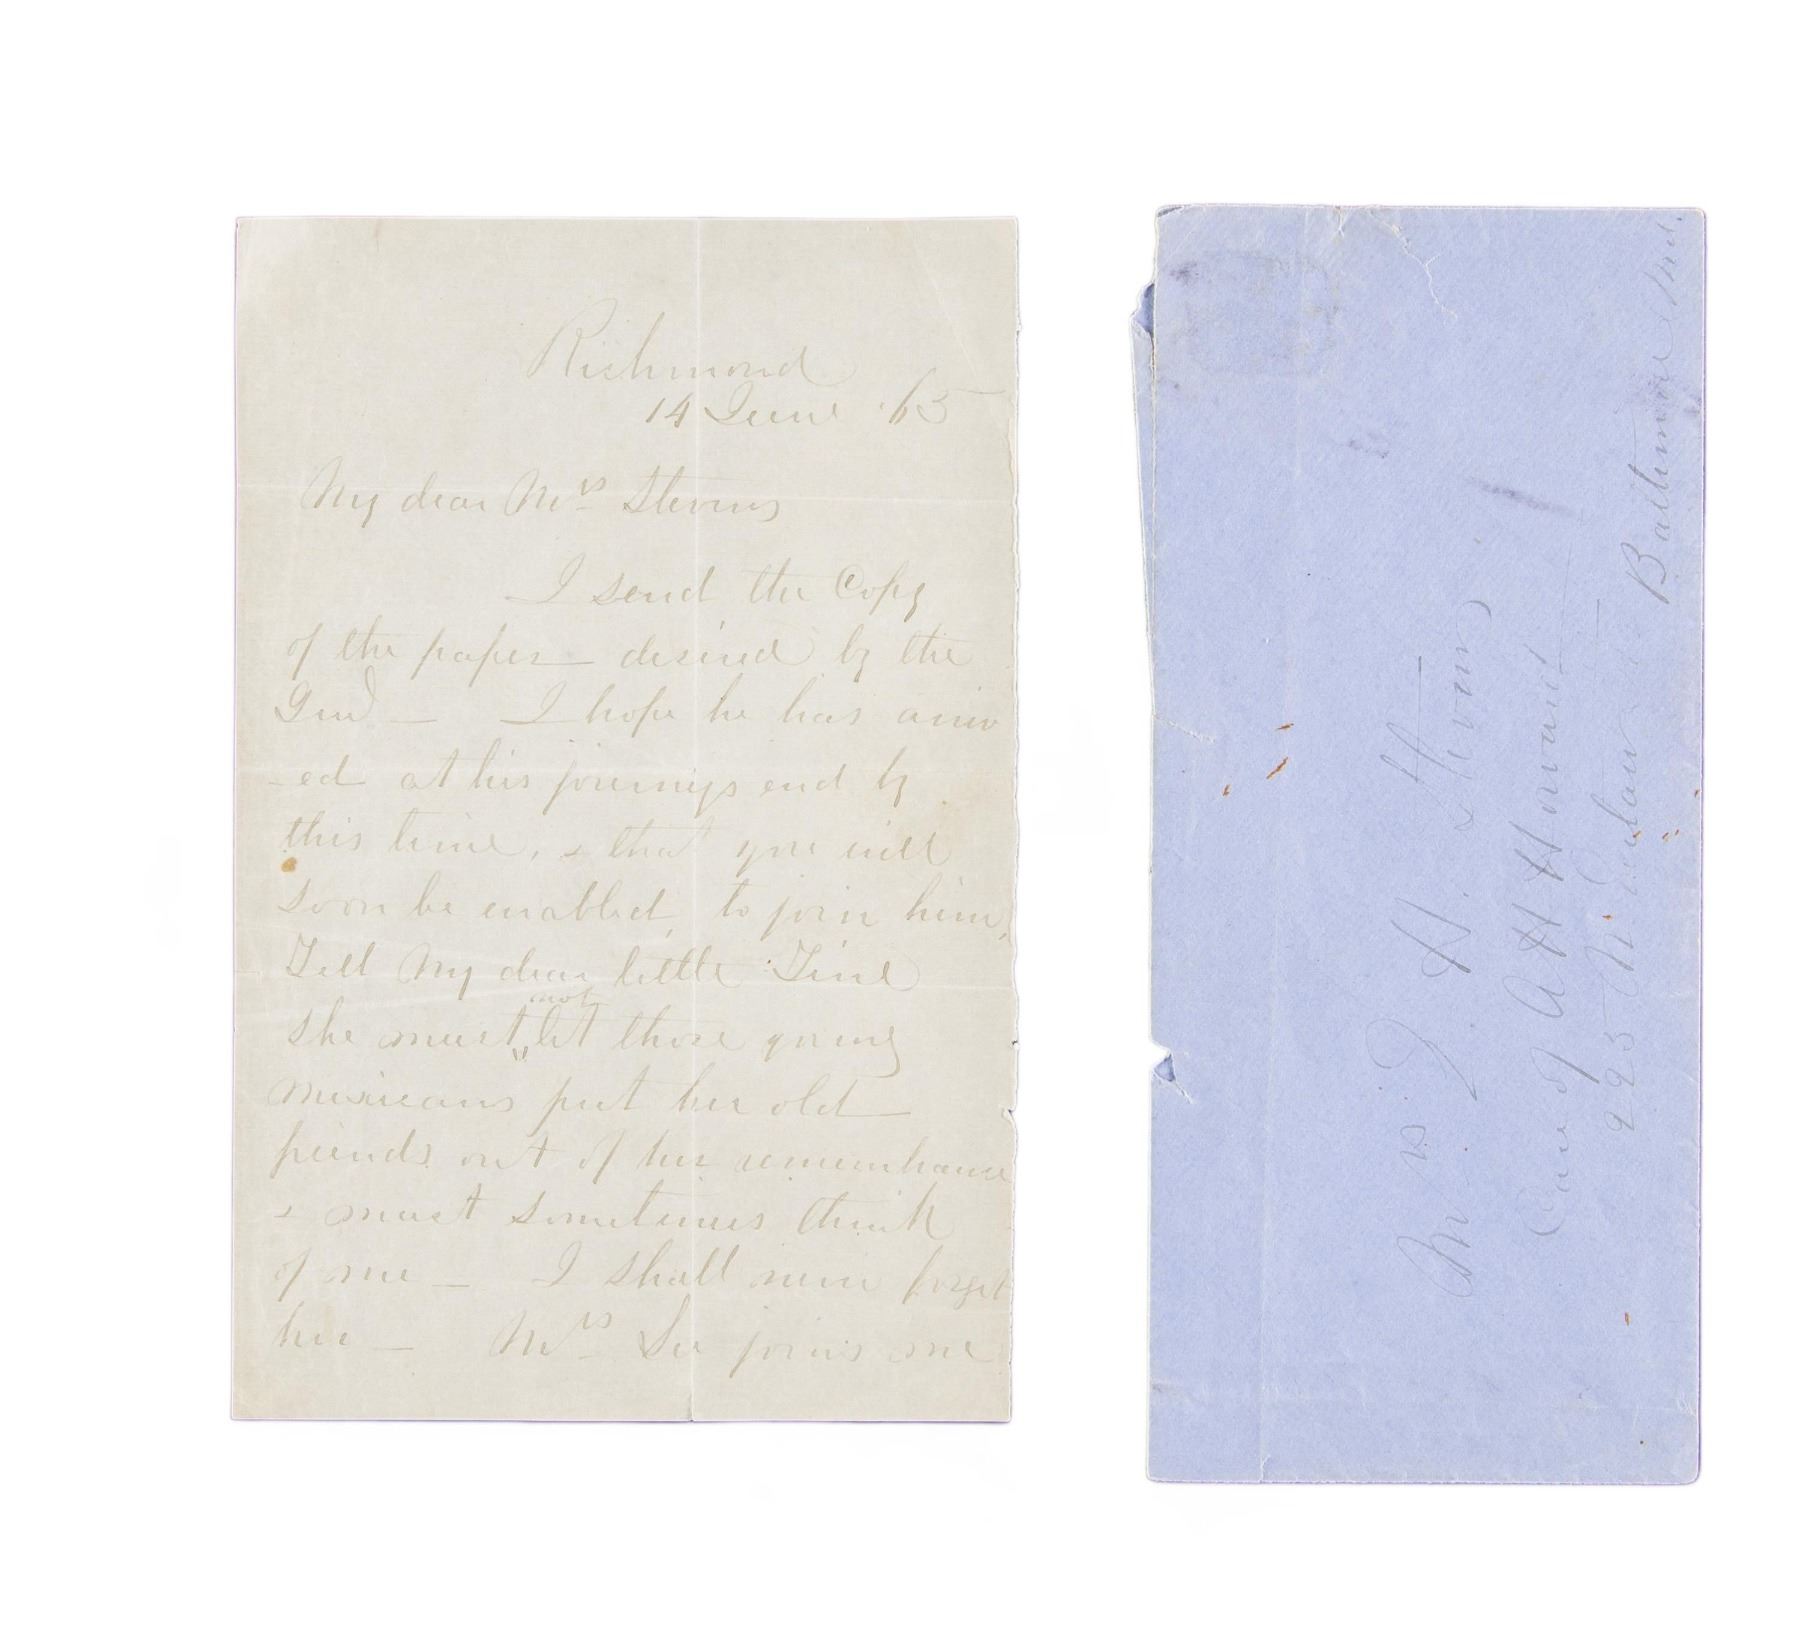 Richmond
14 June '65
My dear Mrs Stevens
I send the Copy
of the paper desired by the
Genl — I hope he has arriv
-ed at his journeys end by
this time, & that you will
soon be enabled, to join him,
Tell My dear little Tine
she must not let those young
mexicans put her old
friends out of her remembrance
& must sometimes think
of me — I shall never forget
her — Mrs Lee joins me
Mrs W. H. Stevens
Care of
225 N
Baltimore Md.